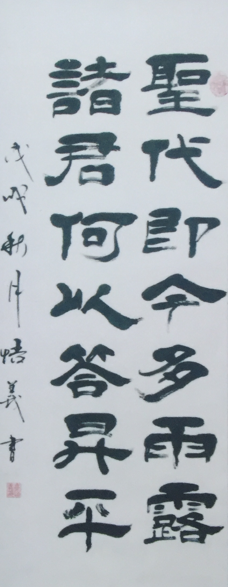 聖代即今多雨露
諸君何以答昇平
戊戌秋月悟義書